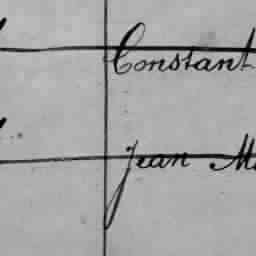 Constant
Jean M